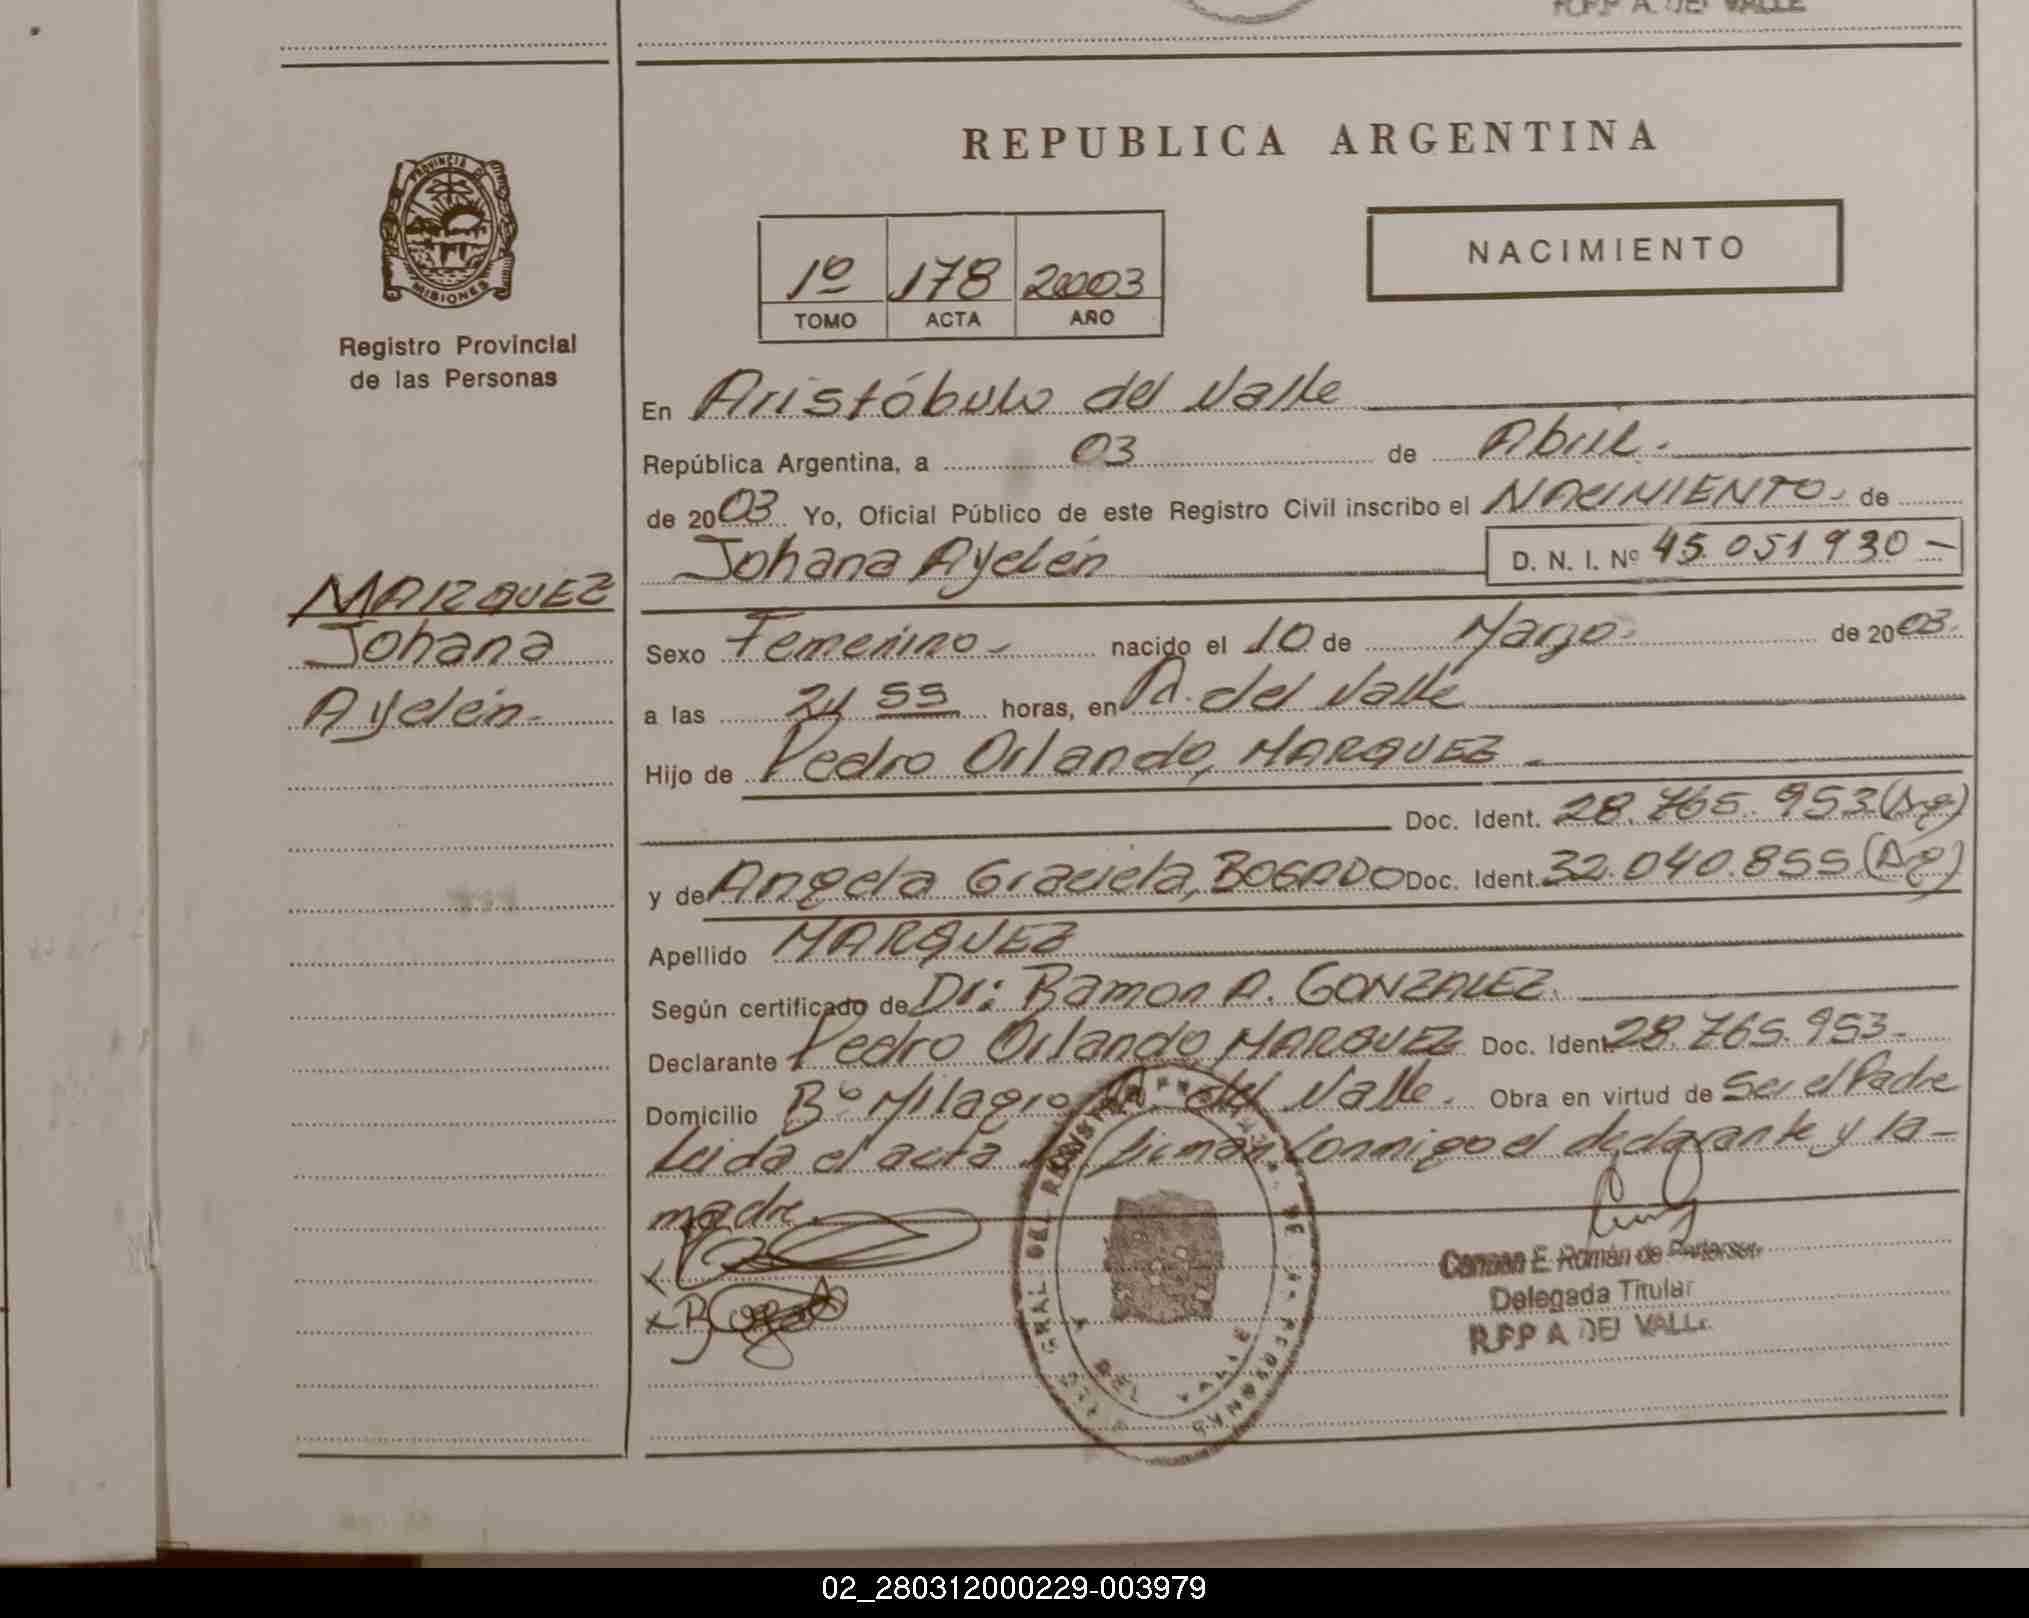 R.P.P A. DEL VALLE
REPUBLICA ARGENTINA
PROVINCIA DE
MISIONES
Registro Provincial
de las Personas
NACIMIENTO
1º 178 20003
TOMO ACTA AÑO
En Aristóbulo del Valle
República Argentina, a 03 de Abril.
de 2003 Yo, Oficial Público de este Registro Civil inscribo el NACIMIENTO de
Johana Ayelén D. N. I. Nº 45.051930 -
MARQUEZ
Johana
Ayelén
Sexo Femenino nacido el 10 de Marzo de 2003.
a las 21 55 horas, en A. del Valle
Hijo de Pedro Orlando, MARQUEZ
Doc. Ident. 28.765.953 (Arg)
y de Angela Graciela, BOGADO Doc. Ident. 32.040.855 (Ag)
Apellido MARQUEZ
Según certificado de Dr: Ramon A. GONZALEZ.
Declarante Pedro Orlando MARQUEZ Doc. Ident. 28.765.953.-
Domicilio Bº Milagro A. del Valle. Obra en virtud de Ser el Padre
Leida el acta la firman conmigo el declarante y la-
madre.
x
x Bogado
Carmen E. Román de
Delegada Titular
R.P.P A DEL VALLE
02_280312000229-003979